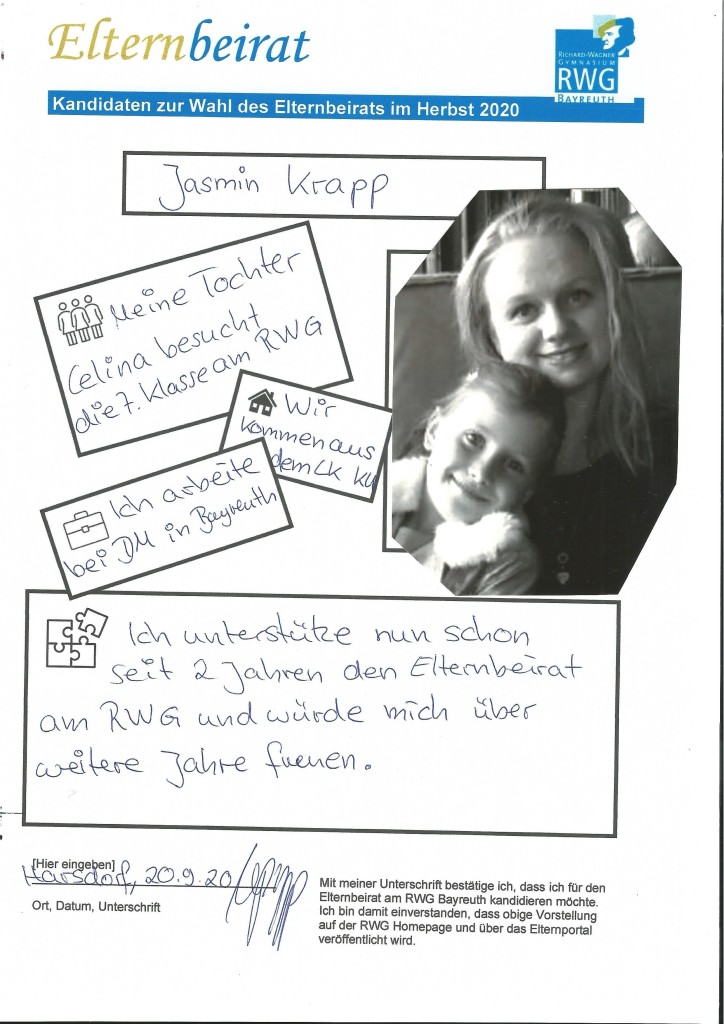 Elternbeirat
RICHARD-WAGNER
GYMNASIUM
RWG
BAYREUTH
Kandidaten zur Wahl des Elternbeirats im Herbst 2020
Jasmin Krapp
Meine Tochter
Celina besucht
die 7. Klasse am RWG
Wir
kommen aus
dem LK KU
Ich arbeite
bei DM in Bayreuth
Ich unterstütze nun schon
seit 2 Jahren den Elternbeirat
am RWG und würde mich über
weitere Jahre freuen.
[Hier eingeben]
Harsdorf, 20.9.20
Ort, Datum, Unterschrift
Mit meiner Unterschrift bestätige ich, dass ich für den
Elternbeirat am RWG Bayreuth kandidieren möchte.
Ich bin damit einverstanden, dass obige Vorstellung
auf der RWG Homepage und über das Elternportal
veröffentlicht wird.